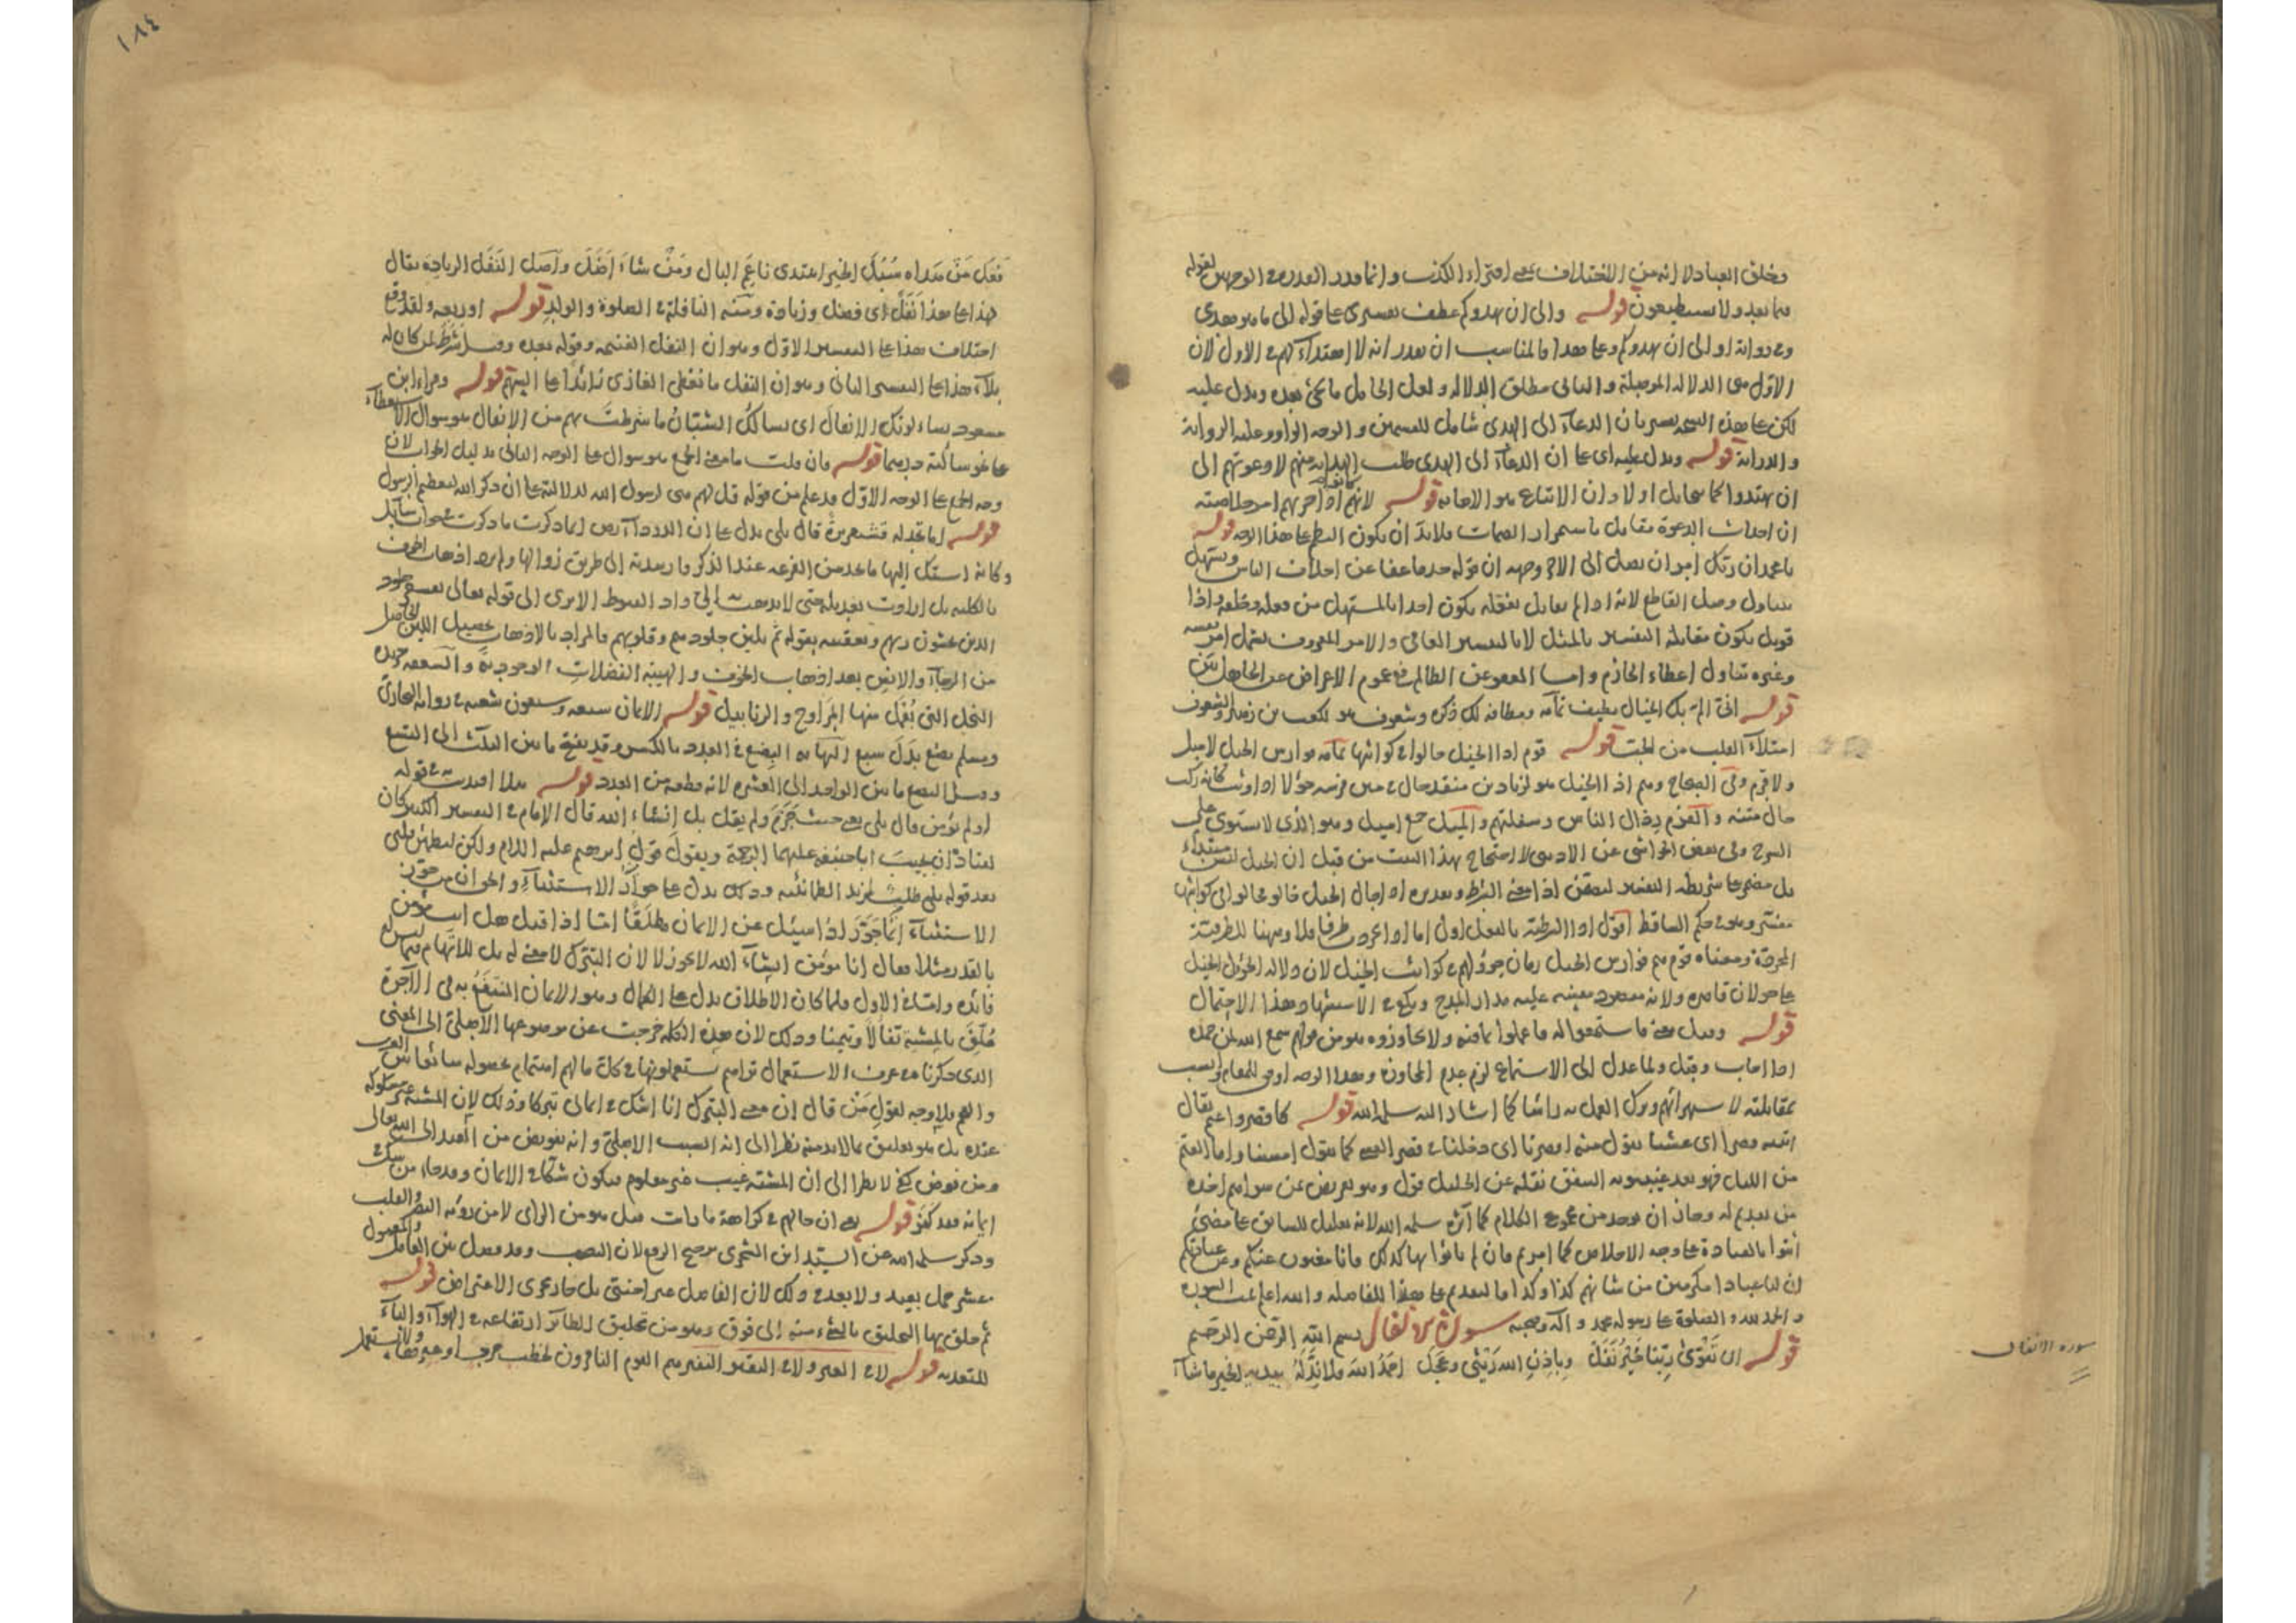 وخلق العباد لا انه من الاختلاف معنى افتراء الكذب وانما قدر القدر على الوجهين لقوله
فيما بعد ولا يستطيعون قوله والى ان يهدوكم عطف تفسيرى على قوله الى ما هو هدى
وفى رواية او الى ان يهدوكم وعلى هذا فالمناسب ان يقدر انه لا اهتداء لهم فى الاول لان
الاول من الدلالة الموصلة والثانى مطلق الدلالة ولعل الحامل ما يجئ بعده ويدل عليه
لكن على هذه النسخة يفسر بان الدعاء الى الهدى شامل للقسمين والوجه الواو وعليه الرواية
والدراية قوله ويدل عليه اى على ان الدعاء الى الهدى طلب الهداية منهم لا دعوتهم الى
ان يهتدوا كما يقابل اولا وان الاتباع هو الاجابة قوله لانهم اذا حزبهم امر
ان احداث الدعوة مقابل باستمرار الصمات فلا بد ان يكون النظم على هذا الوجه قوله
يا محمد ان ربك امر ان تصل الى الاخر وجهه ان قوله خذ ما عفا عن اخلاق الناس وتسهل
يتناول وصل القاطع لانه اذا لم يقابل بفعله يكون اخذا بالمستهل من فعله وخلقه واذا
قوبل يكون مقابلة التفسير بالمثل لا بالتفسير العافى والامر بالمعروف يشمل امر نفسه
وغيره تناول اعطاء الحارم واما العفو عن الظالم فى عموم الاعراض عن الجاهل بين
قوله انى الم بك الخيال يطيف تمامه ومطافه لك ذكرة وشعوف هو لكعب بن زهير والشعوف
امتلاء القلب من الحب قوله قوم اذا الخيل جالوا فى كواثبها تمامه فوارس الخيل لا ميل
ولا قزم وفى الصحاح وهم اذا الخيل هو لزياد بن منقذ حال فى متن فرسه حؤلا اذا وثب كانه ركب
حال متنه والقزم رذال الناس وسفلتهم والميل جمع اميل وهو الذى لا يستوى على
السرج وفى بعض الحواشى عن الاديبى لا احتجاج بهذا البيت من قبل ان الخيل ليس مبتداء
بل مضمر على شريطة التفسير ليضمن اذا معنى الشرط وتقديره اذا جال الخيل جالوا فى كواثبها
مفسر وهو فى حكم الساقط اقول اذا الشرطية بالفعل اولى اما اذا جردت ظرفا فلا وههنا للظرفية
المحضة ومعناه قوم هم فوارس الخيل زمان جولهم فى كواثب الخيل لان دلالة الحؤول الخيل
على جولان قاصرة ولانه مقصود بعينه عليه مدار المدح ويكفى الاستشهاد هذا الاحتمال
قوله وقيل معنى فاستمعوا له فاعملوا بما فيه ولا تجاوزوه هو من قولهم سمع الله لمن حمده
اذا اجاب وقبل ولما عدل الى الاستماع لزم عدم المجاوزة وهذا الوجه اوفق للمقام وانسب
بمقابلته لاستهزائهم وترك العمل به راسا كما اشار اليه سلمه الله قوله كما قصروا عنهم يقال
اتيته قصرا اى عشيا تقول منه اقصرنا اى دخلنا فى قصر العشى كما تقول امسينا واما العتم
من الليل فهو بعد غيبوبة الشفق نقله عن الخليل قوله وهو تعريض عن سواهم اخذه
من تقديم له وجاز ان يوخذ من مجموع الكلام كما آثره سلمه الله لانه تعليل للسابق على معنى
ائتوا بالعبادة على وجه الاخلاص كما امرتم فان لم تاتوا بها كذلك فانا مغنون عنكم وعن عبادتكم
ان لنا عبادا مكرمين من شانهم كذا وكذا فالتقديم على هذا للفاصلة والله اعلم تمت السورة
والحمد لله والصلوة على رسوله محمد وآله وصحبه سورة الانفال بسم الله الرحمن الرحيم
قوله ان تقوى ربنا خير نفل وباذن الله ريثى وعجل احمد الله فلا ند له بيديه الخير ما شاء
سورة الانفال
١٨٤
فعل من هداه سبل الخير اهتدى ناعم البال ومن شاء اضل واصل النفل الزيادة يقال
لهذا على هذا نفل اى فضل وزيادة ومنه النافلة فى الصلوة والولد قوله او ربعه ولقد وقع
اختلاف هذا على التفسير الاول وهو ان النفل الغنيمة وقوله بعده وقيل شرط لمن كان له
بلاء هذا على التفسير الثانى وهو ان النفل ما يعطى الغازى زائدا على السهم قوله وقراء ابن
مسعود يساءلونك الانفال اى يسالك الشبان ما شرطت لهم من الانفال هو سوال الاستعطاء
على نحو سالته درهما قوله فان قلت ما معنى الجمع هو سوال على الوجه الثانى بدليل الجواب لان
وجه الجمع على الوجه الاول قد علم من قوله قل لهم هى لرسول الله لدلالته على ان ذكر الله لتعظيم الرسول
قوله اما تجد له قشعريرة قال بلى يدل على ان
وكانه اشتكى اليها ما يجد من الفزعة عند الذكر فارشدته الى طريق زوالها ولم يرد اذهاب الخوف
بالكلية بل ارادت تعديله حتى لا يذهب به الى واد القنوط الا ترى الى قوله تعالى تقشعر منه جلود
الذين يخشون ربهم وتعقيبه بقوله ثم تلين جلودهم وقلوبهم فالمراد بالاذهاب تحصيل اللين الحاصل
من الرجاء والانس بعد اذهاب الخوف والهيبة الفضلات الوجودية والسعفة جريد
النخل التى يعمل منها المراوح والزنابيل قوله الايمان سبعة وسبعون شعبة فى رواية البخارى
ومسلم بضع بدل سبع البضع فى العدد بالكسر وقد يفتح ما بين الثلث الى التسع
وقيل البضع ما بين الواحد الى العشرة لانه قطعة من العدد قوله هلا اقتديت به فى قوله
اولم تؤمن قال بلى يعنى حيث جزم ولم يقل بلى انشاء الله قال الامام فى التفسير الكبير كان
لقتادة ان يجيب ابا حنيفة عليهما الرحمة ويقول قول ابرهيم عليه السلام ولكن ليطمئن قلبى
بعد قوله بلى طلب لمزيد الطمانينة وذلك يدل على جواز الاستثناء والحق ان من جوز
الاستثناء انما جوز اذا سئل عن الايمان مطلقا اما اذا قيل هل انت مؤمن
بالقدر مثلا فقال انا مؤمن انشاء الله لا يجوز لا لان التبرك لا معنى له بل للاتهام فيما ليس له
فائدة واما فى الاول فلما كان الاطلاق يدل على الكمال وهو الايمان المنتفع به فى الآخرة
علق بالمشية تفالا وتيمنا وذلك لان هذه الكلمة خرجت عن موضوعها الاصلى الى المعنى
الذى ذكرنا فى عرف الاستعمال تراهم يستعملونها فى كل ما لهم اهتمام بحصوله شائعا بين العرب
والعجم فلا وجه لقول من قال ان معنى التبرك انا اشك فى ايمانى تبركا وذلك لان المشية غير مشكوكة
عنده بل هو تعليق بما لابد منه نظرا الى انه السبب الاصلى وانه تفويض من العبد الى الله تعالى
ومن فوض كفى لا نظرا الى ان المشية غيب غير معلوم فيكون شكا فى الايمان وقد جاء من شك فى
ايمانه فقد كفر قوله يعنى ان حالهم فى كراهة ما رات قيل هو من الراى لا من رؤية البصر والقلب
وذكر سلمه الله عن السيد ابن الشجرى ترجيح الرفع لان النصب وقد فصل بين العامل والمعمول
بعشر جمل بعيد ولا بعد فى ذلك لان الفاصل غير اجنبى بل جار مجرى الاعتراض قوله
ثم حلق بها التحليق بالشئ رميه الى فوق وهو من تحليق الطائر ارتفاعه فى الهواء والباء
للتعدية قوله لا فى العير ولا فى النفير النفير هم القوم النافرون لخطب حرب او غيره